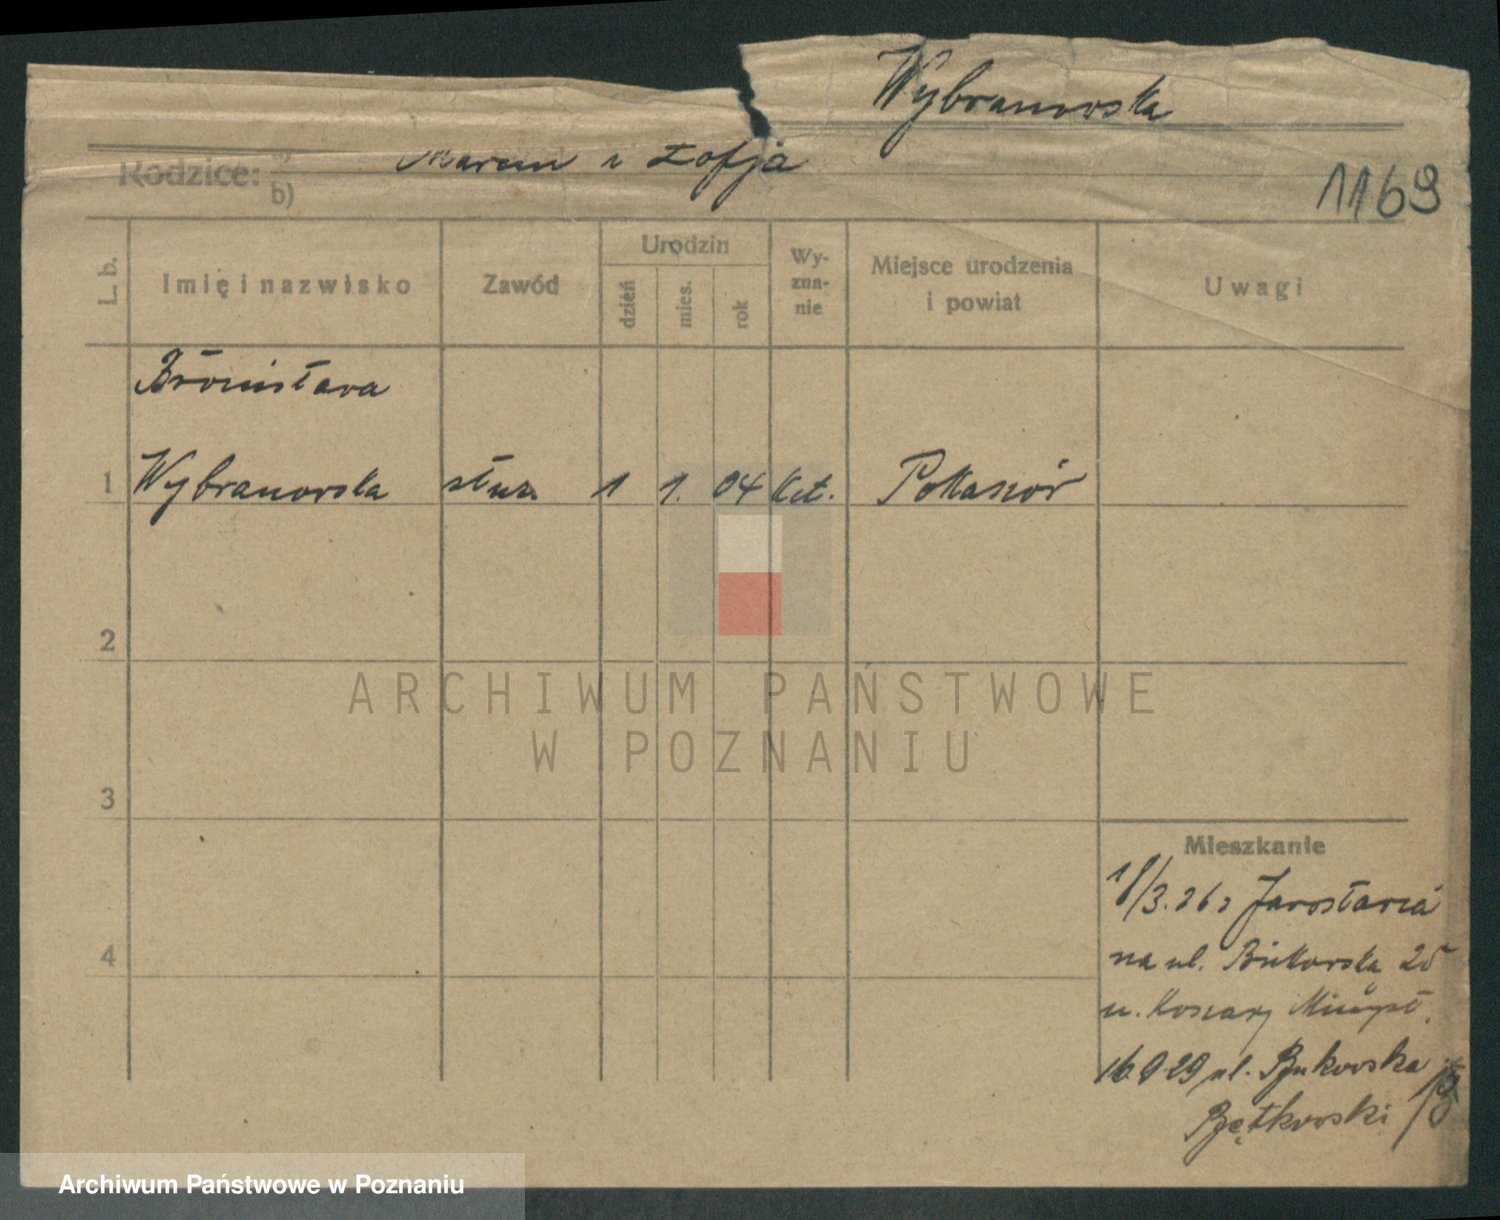 Wybranowska
Rodzice: Marcin i Zofja
b)
1169
L. b. Imię i nazwisko Zawód Urodzin dzień mies. rok Wy-zna-nie Miejsce urodzenia i powiat Uwagi
Bronisława
1 Wybranowska służ. 1 1. 04 kat.
2
ARCHIWUM PAŃSTWOWE
W POZNANIU
3
Mieszkanie
/3.26 z Jarosławia
4 na ul. Bukowska 25
u.
16.9.29 ul. Bukowska
Archiwum Państwowe w Poznaniu